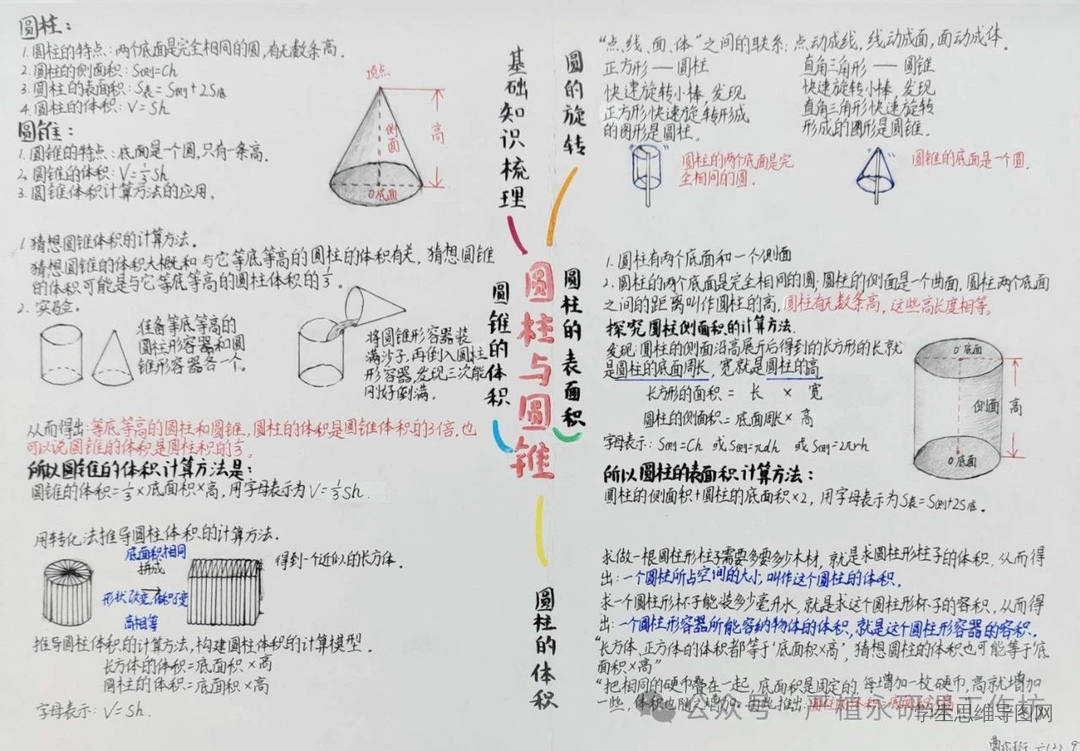 圆柱:
1.圆柱的特点:两个底面是完全相同的圆,有无数条高。
2.圆柱的侧面积:S侧=Ch
3.圆柱的表面积:S表=S侧+2S底
4.圆柱的体积:V=Sh
圆锥:
1.圆锥的特点:底面是一个圆,只有一条高。
2.圆锥的体积:V=⅓Sh
3.圆锥体积计算方法的应用。
顶点
侧面
高
O底面
基础知识梳理
圆的旋转
“点、线、面、体”之间的联系:点动成线,线动成面,面动成体。
正方形—圆柱
快速旋转小棒,发现
正方形快速旋转形成
的图形是圆柱。
直角三角形—圆锥
快速旋转小棒,发现
直角三角形快速旋转
形成的图形是圆锥。
圆柱的两个底面是完
全相同的圆.
圆锥的底面是一个圆.
1.猜想圆锥体积的计算方法。
猜想圆锥的体积大概和与它等底等高的圆柱的体积有关,猜想圆锥
的体积可能是与它等底等高的圆柱体积的⅓.
2.实验.
准备等底等高的
圆柱形容器和圆
锥形容器各一个。
将圆锥形容器装
满沙子,再倒入圆柱
形容器,发现三次能
刚好倒满。
从而得出:等底等高的圆柱和圆锥,圆柱的体积是圆锥体积的3倍.也
可以说圆锥的体积是圆柱积的⅓.
所以圆锥的体积计算方法是:
圆锥的体积=⅓×底面积×高,用字母表示为V=⅓Sh.
圆锥的体积
圆柱与圆锥
圆柱的表面积
1.圆柱有两个底面和一个侧面
2.圆柱的两个底面是完全相同的圆.圆柱的侧面是一个曲面,圆柱两个底面
之间的距离叫作圆柱的高,圆柱有无数条高,这些高长度相等。
探究圆柱侧面积的计算方法.
发现:圆柱的侧面沿高展开后得到的长方形的长就
是圆柱的底面周长,宽就是圆柱的高
长方形的面积 = 长 × 宽
圆柱的侧面积=底面周长×高
字母表示:S侧=Ch 或S侧=πdh 或S侧=2πrh
O底面
侧面
高
O底面
所以圆柱的表面积计算方法:
圆柱的侧面积+圆柱的底面积×2,用字母表示为S表=S侧+2S底。
用转化法推导圆柱体积的计算方法.
底面积相同
拼成
形状改变,体积不变
高相等
得到一个近似的长方体.
推导圆柱体积的计算方法,构建圆柱体积的计算模型.
长方体的体积=底面积×高
圆柱的体积=底面积×高
字母表示:V=Sh.
圆柱的体积
求做一根圆柱形柱子需要多少木材,就是求圆柱形柱子的体积,从而得
出:一个圆柱所占空间的大小,叫作这个圆柱的体积.
求一个圆柱形杯子能装多少毫升水,就是求这个圆柱形杯子的容积,从而得
出:一个圆柱形容器所能容纳物体的体积,就是这个圆柱形容器的容积.
“长方体、正方体的体积都等于‘底面积×高’,猜想圆柱的体积也可能等于‘底
面积×高”
“把相同的硬币叠在一起,底面积是固定的,每增加一枚硬币,高就增加
一些,体积也随之增加。由此推出:
公众号·严植永研习工作坊
学生思维导图网